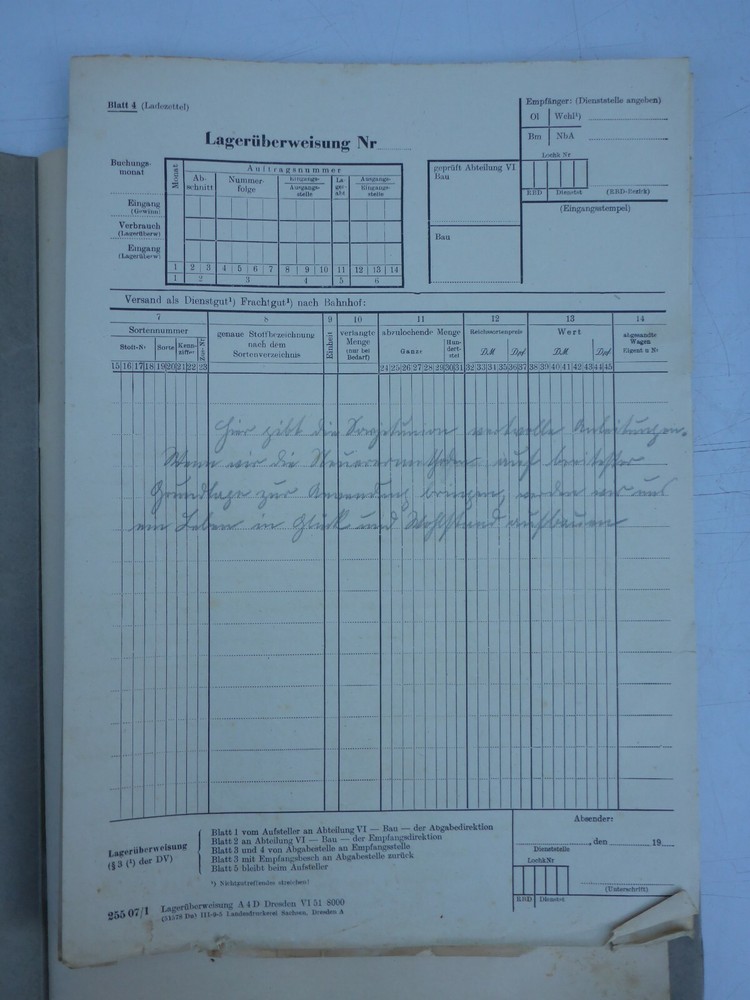 Blatt 4 (Ladezettel)
Lagerüberweisung Nr
Empfänger: (Dienststelle angeben)
Ol Wehl¹)
Bm NbA
Loch Nr
RBD Dienstst (RBD-Bezirk)
(Eingangsstempel)
geprüft Abteilung VI
Bau
Bau
Buchungs-
monat
Monat
Auftragsnummer
Ab-
schnitt
Nummer-
folge
Eingangs-
Ausgangs-
stelle
La-
ge-
abt
Ausgangs-
Eingangs-
stelle
Eingang
(Gewinn)
Verbrauch
(Lagerüberw)
Eingang
(Lagerüberw)
1 2 3 4 5 6 7 8 9 10 11 12 13 14
1 2 3 4 5 6
Versand als Dienstgut¹) Frachtgut¹) nach Bahnhof:
7 8 9 10 11 12 13 14
Sortennummer
Stoff-Nr Sorte Kenn-
ziffer
genaue Stoffbezeichnung
nach dem
Sortenverzeichnis
Einheit
verlangte
Menge
(nur bei
Bedarf)
abzulochende Menge
Ganze
Hun-
dert-
stel
Reichssortenpreis
DM Dpf
Wert
DM Dpf
abgesandte
Wagen
Eigent u Nr
15 16 17 18 19 20 21 22 23 24 25 26 27 28 29 30 31 32 33 34 35 36 37 38 39 40 41 42 43 44 45
Hier gibt die Sowjetunion wertvolle Anleitungen.
Wenn wir die Neuerermethoden auf breitester
Grundlage zur Anwendung bringen, werden wir uns
ein Leben in Glück und Wohlstand aufbauen
Lagerüberweisung
(§ 3 (¹) der DV)
Blatt 1 vom Aufsteller an Abteilung VI — Bau — der Abgabedirektion
Blatt 2 an Abteilung VI — Bau — der Empfangsdirektion
Blatt 3 und 4 von Abgabestelle an Empfangsstelle
Blatt 3 mit Empfangsbesch an Abgabestelle zurück
Blatt 5 bleibt beim Aufsteller
¹) Nichtzutreffendes streichen!
255 07/1 Lagerüberweisung A 4 D Dresden VI 51 8000
III-9-5 Landesdruckerei Sachsen, Dresden A
Absender:
, den 19
Dienststelle
Loch Nr
(Unterschrift)
RBD Dienstst